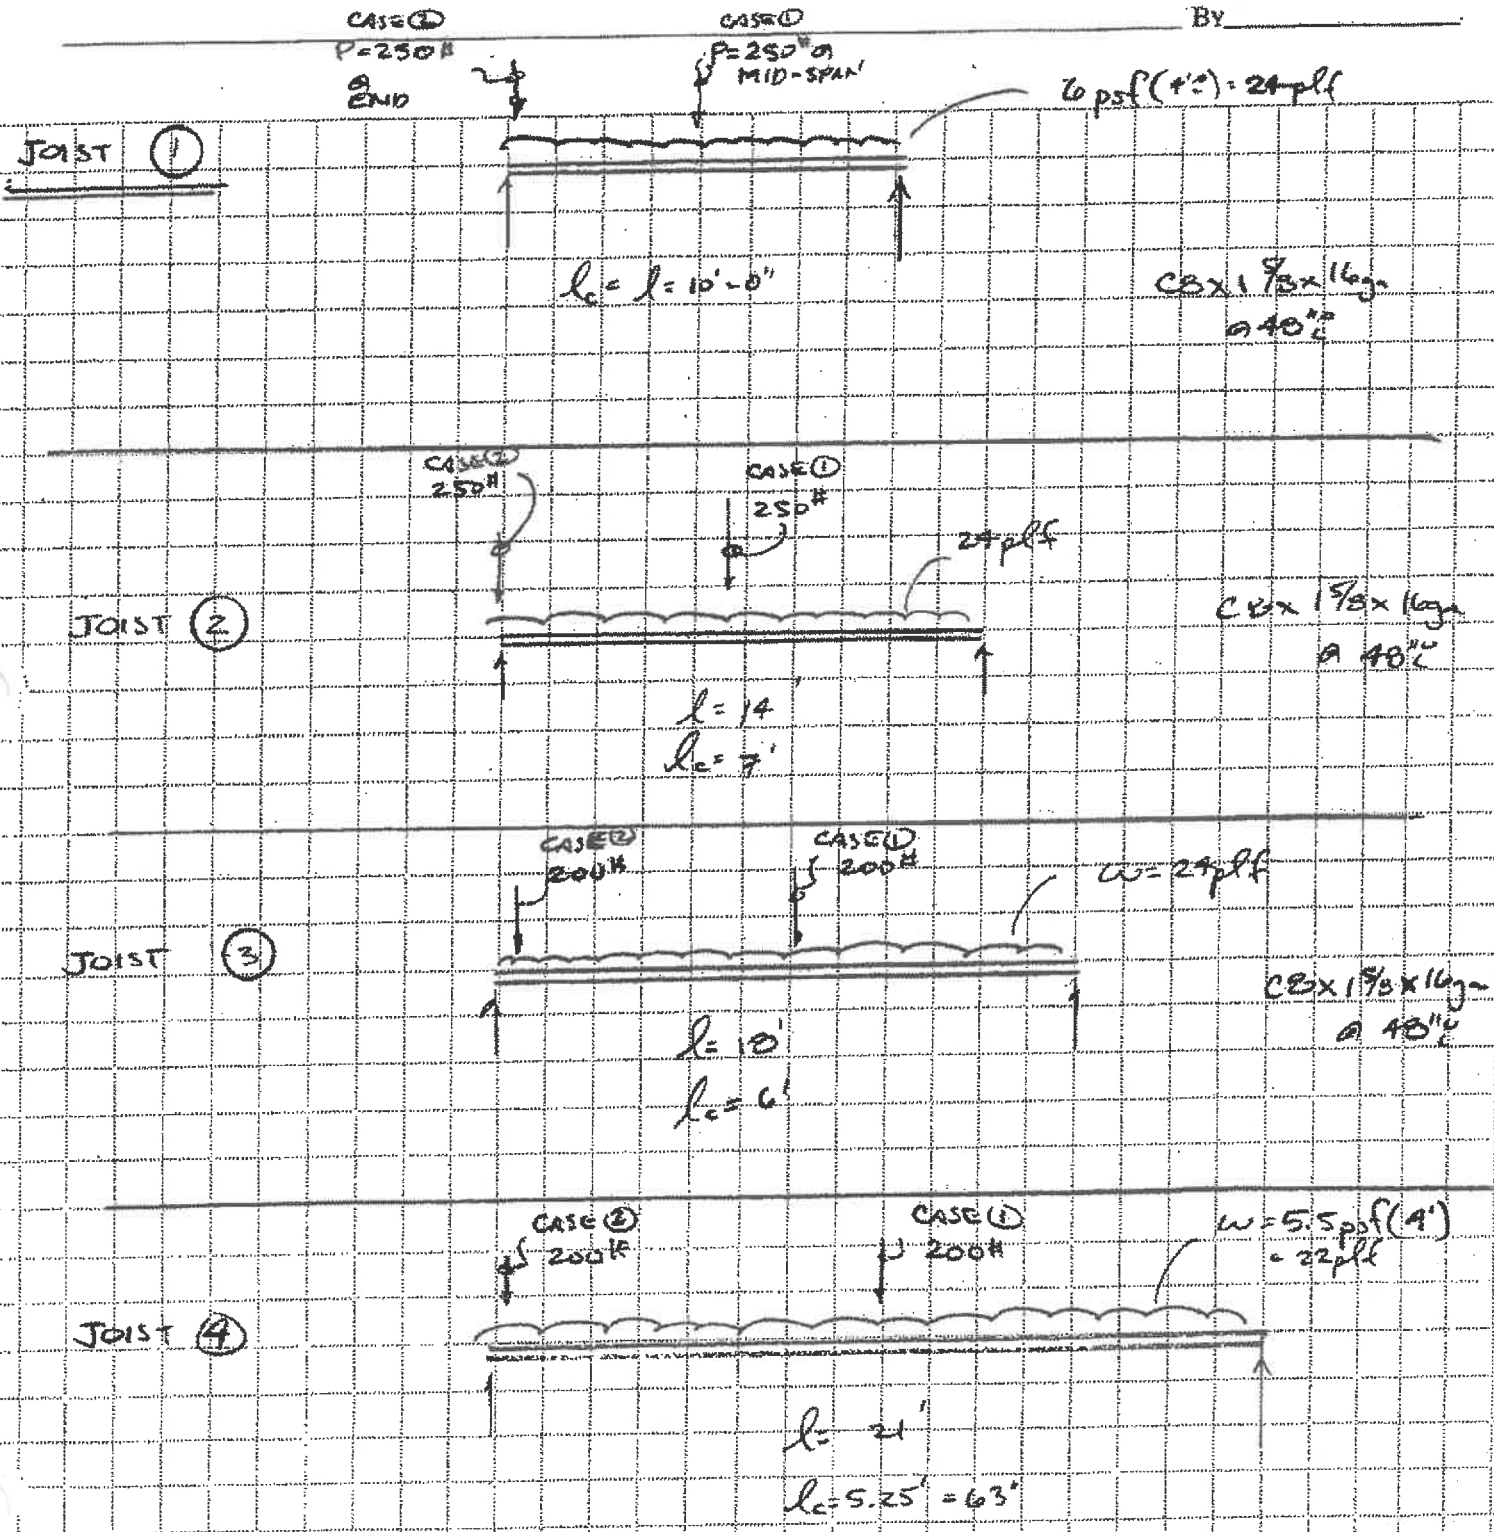 By
CASE ②
P=250#
@
END
CASE ①
P=250# @
MID-SPAN
6 psf (4'±) = 24 plf
JOIST ①
lc = l = 10'-0"
C8 x 1 5/8 x 16ga
@ 48"
CASE ②
250#
CASE ①
250#
24 plf
JOIST ②
C8 x 1 5/8 x 16ga
@ 48"
l = 14'
lc = 7'
CASE ②
200#
CASE ①
200#
w = 24 plf
JOIST ③
C8 x 1 5/8 x 16ga
@ 48"
l = 18'
lc = 6'
CASE ②
200#
CASE ①
200#
w = 5.5 psf (4')
= 22 plf
JOIST ④
l = 21'
lc = 5.25' = 63"